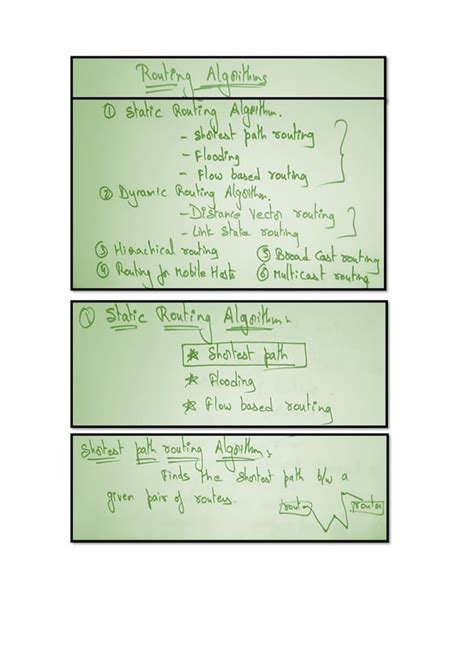 Routing Algorithms
① Static Routing Algorithm.
- Shortest path routing
- Flooding
- Flow based routing
② Dynamic Routing Algorithm.
- Distance Vector routing
- Link State routing
③ Hierachical routing ⑤ Broad Cast routing
④ Routing for Mobile Hosts ⑥ Multicast routing
① Static Routing Algorithm:
* Shortest path
* Flooding
* Flow based routing
Shortest path routing Algorithm:
Finds the shortest path b/w a
given pair of routers.
router router